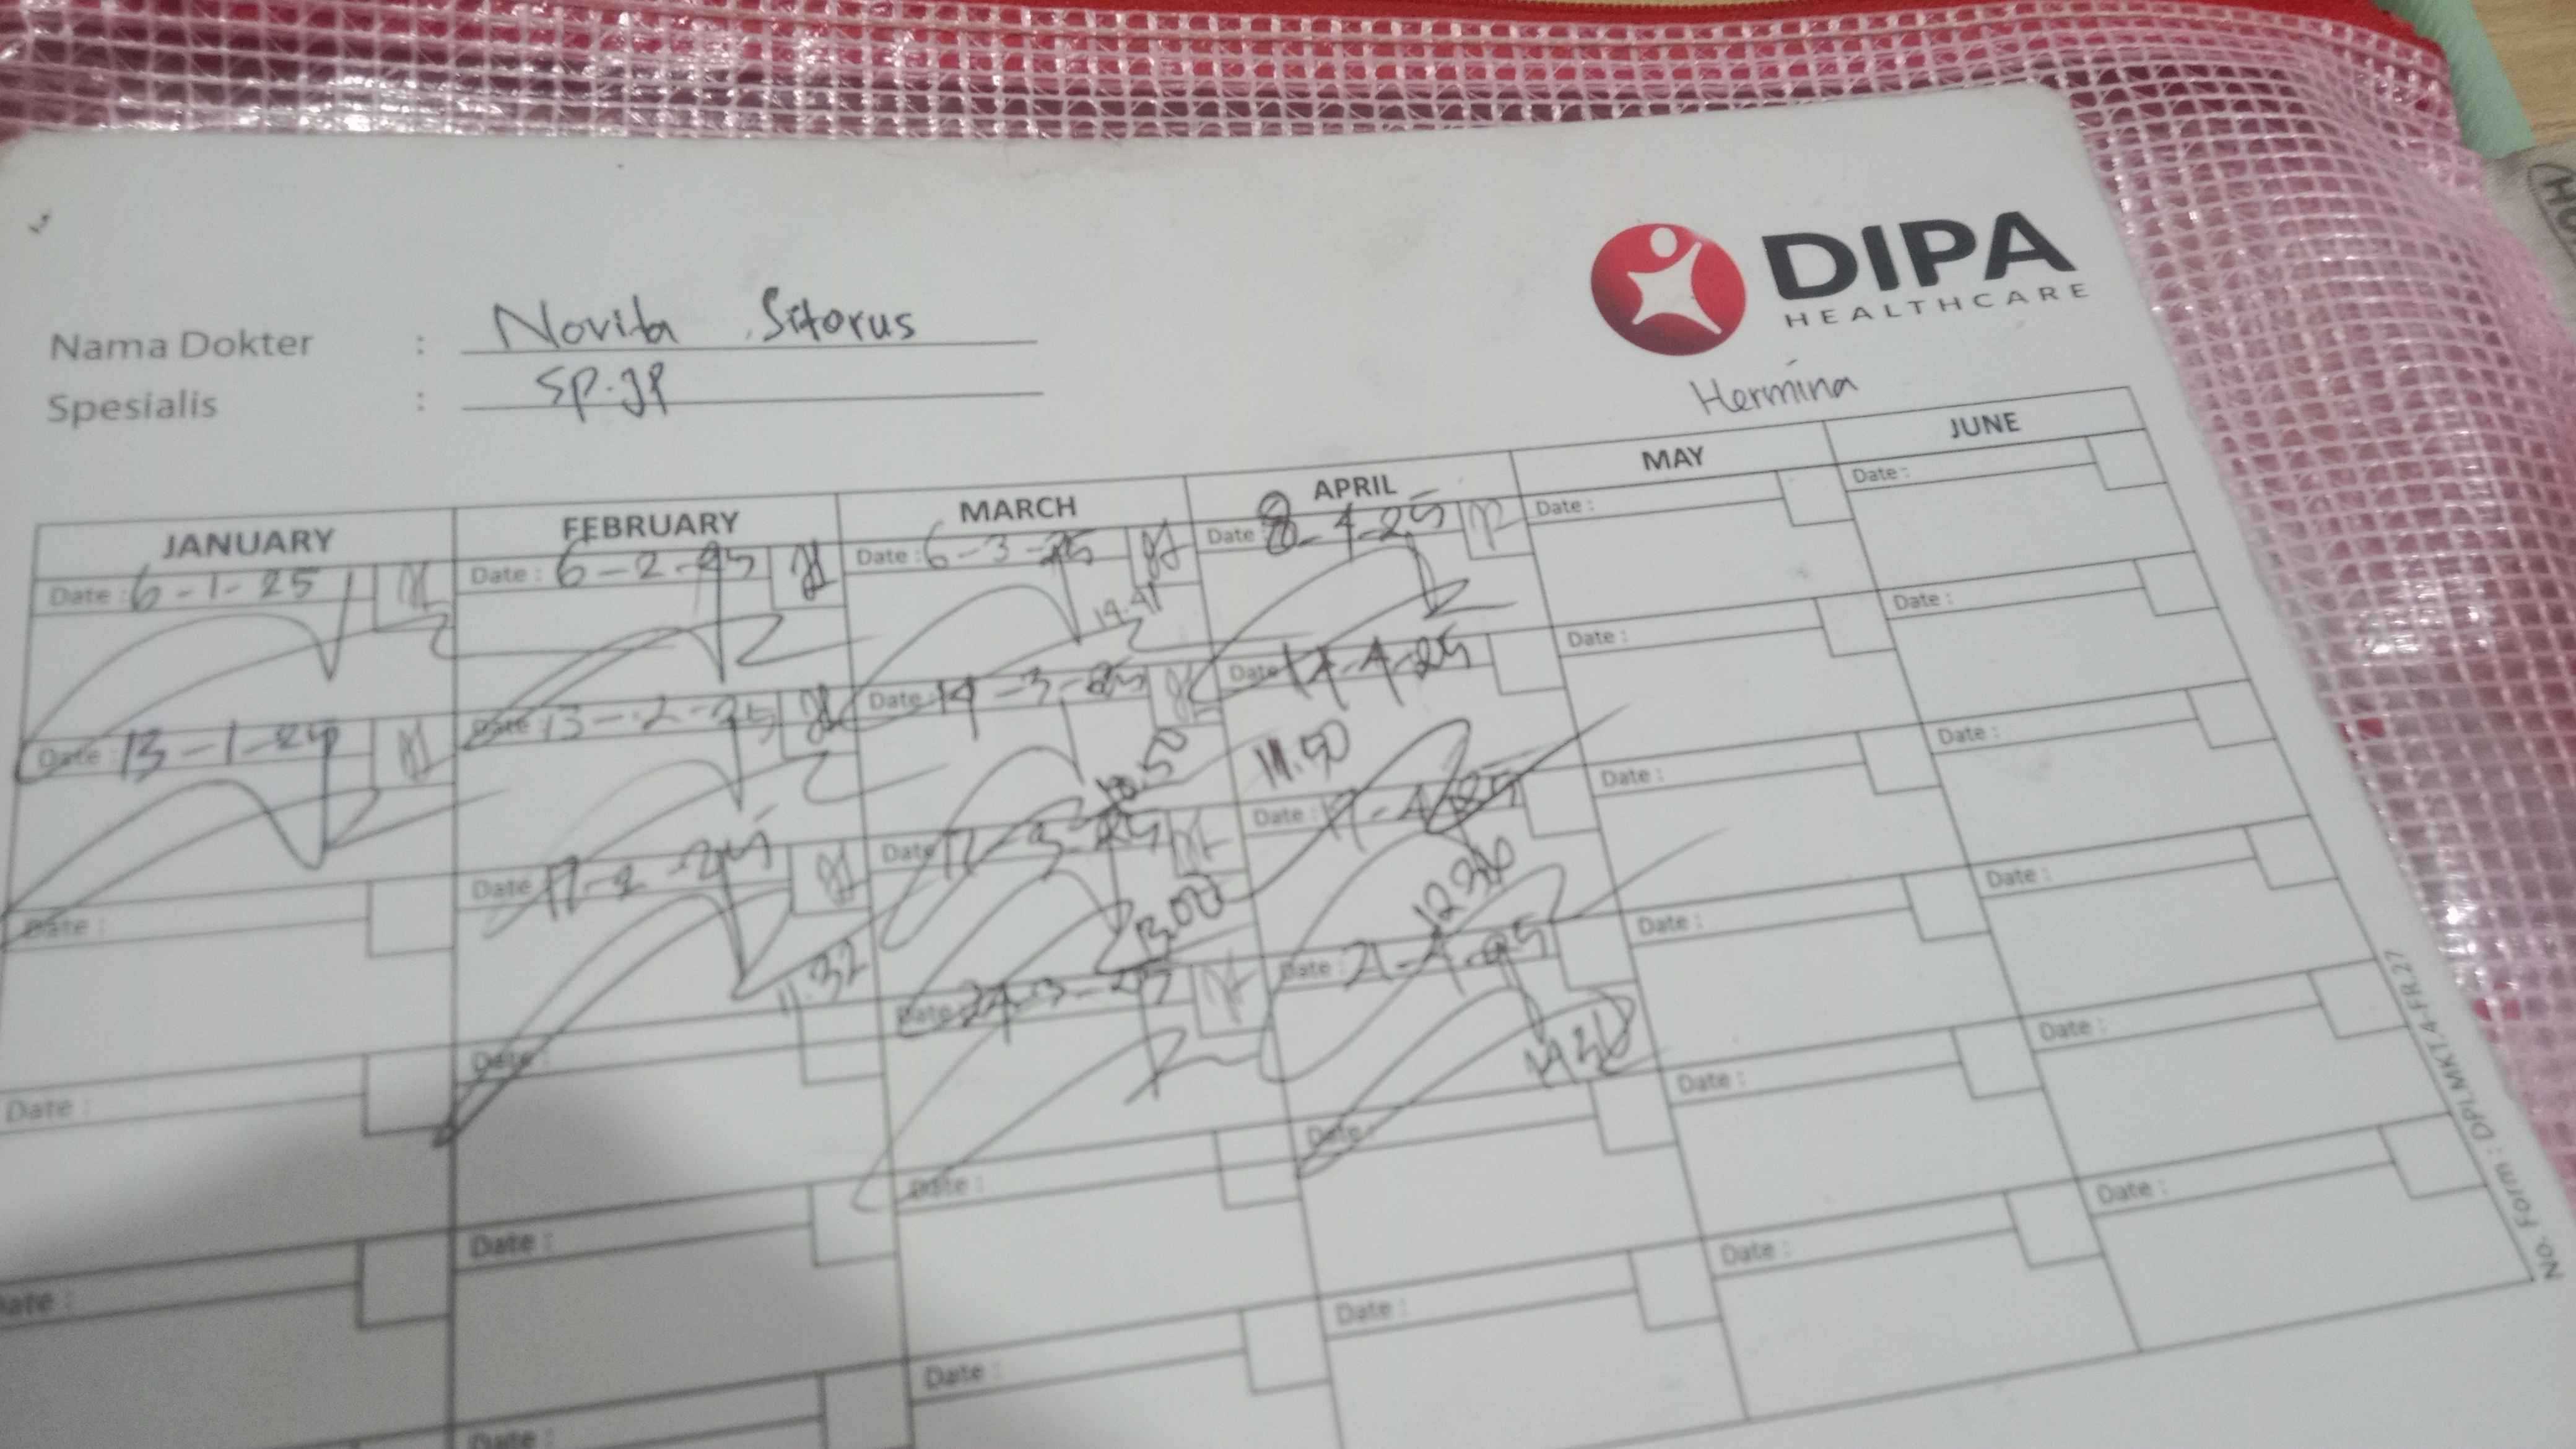 DIPA
HEALTHCARE
Nama Dokter : Novita Sitorus
Spesialis : SP.JP
Hermina
JANUARY FEBRUARY MARCH APRIL MAY JUNE
Date : 6-1-25 Date : 6-2-25 Date : 6-3-25 Date 8-4-25 Date : Date :
14.41
Date : 13-1-25 Date 13-2-25 Date : 14-3-25 Date 14-4-25 Date : Date :
10.50 11.50
Date : Date 17-2-25 Date 17-3-25 Date : 17-4-25 Date : Date :
11.32 13.00 12.30
Date : Date : Date : 24-3-25 Date : 21-4-25 Date : Date :
Date : Date : Date : Date : Date : Date :
Date : Date : Date : Date : Date :
No. Form : DPI.MKT.4-FR.27